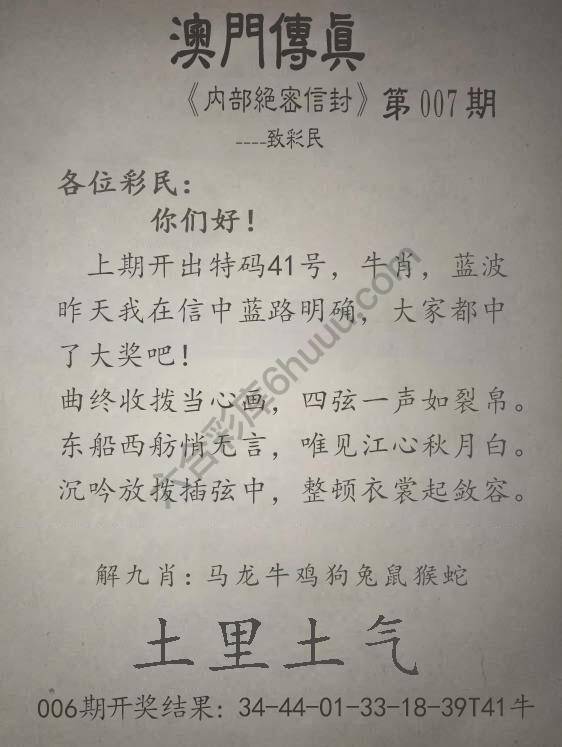 澳門傳眞
《内部絕密信封》第007期
----致彩民
各位彩民：
你们好！
上期开出特码41号，牛肖，蓝波
昨天我在信中蓝路明确，大家都中
了大奖吧！
曲终收拨当心画，四弦一声如裂帛。
东船西舫悄无言，唯见江心秋月白。
沉吟放拨插弦中，整顿衣裳起敛容。
解九肖：马龙牛鸡狗兔鼠猴蛇
土里土气
006期开奖结果：34-44-01-33-18-39T41牛
六合彩库6huuu.com